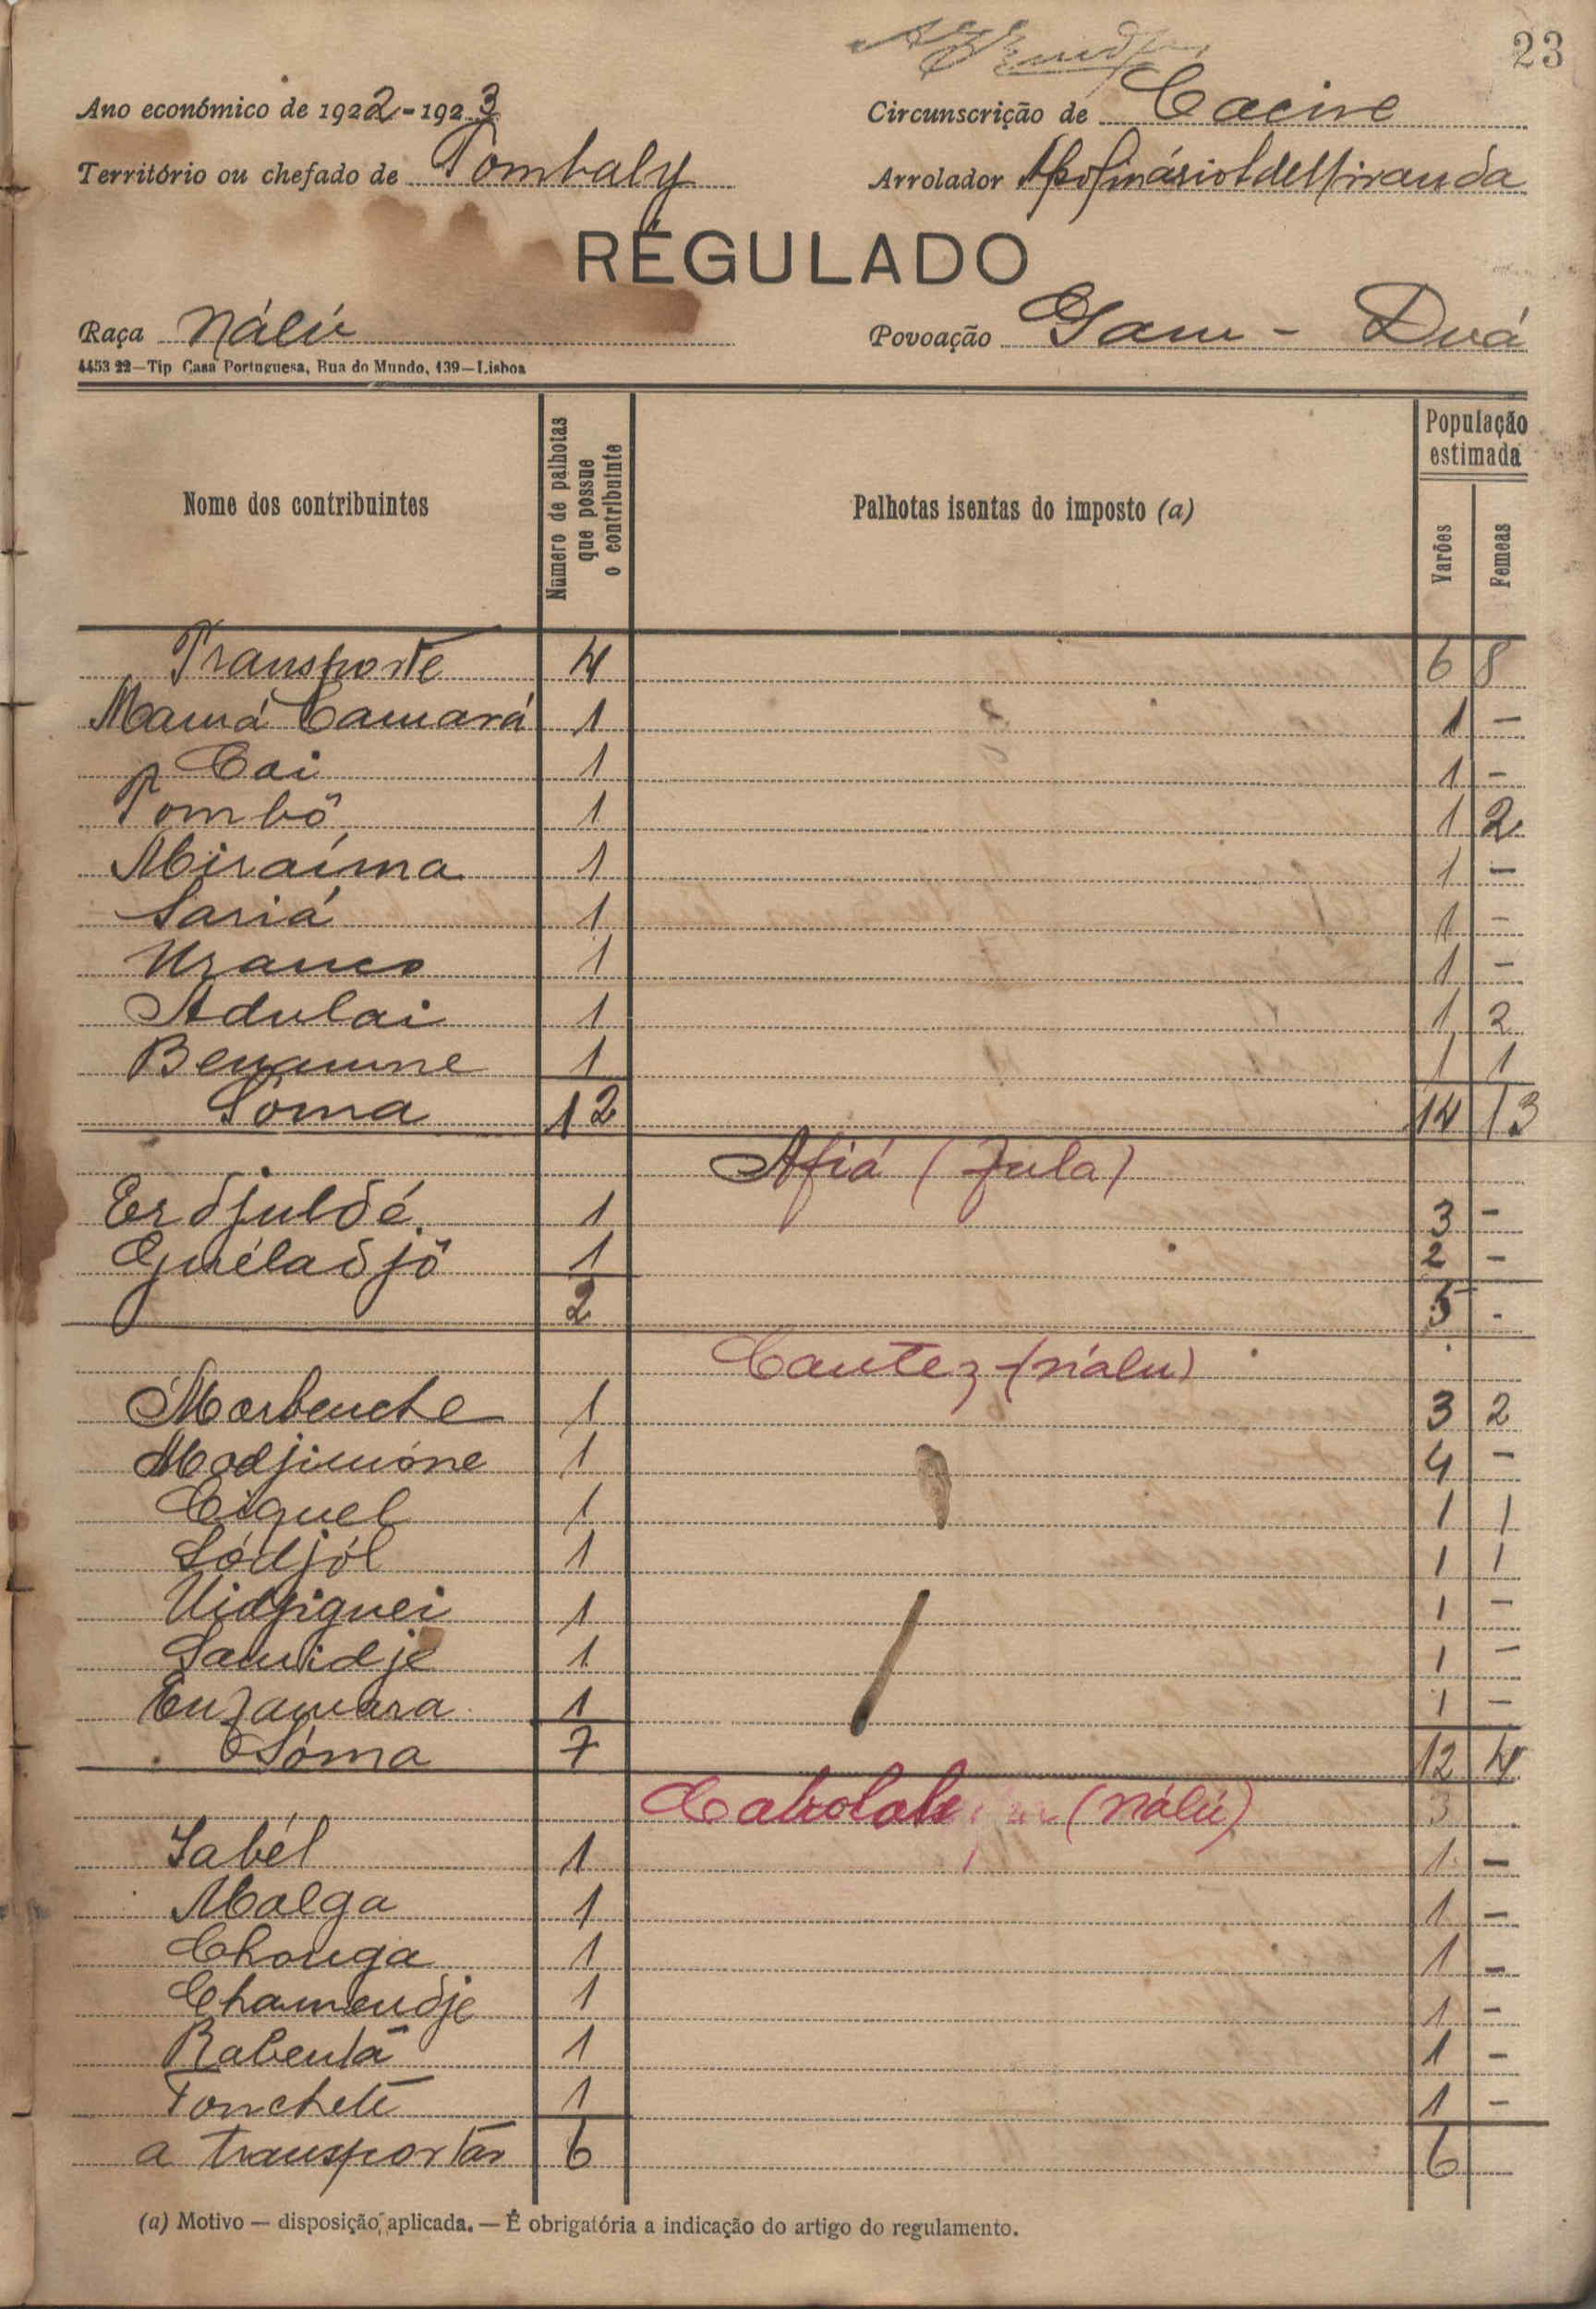 23
Ano económico de 1922-1923
Circunscrição de Cacine
Território ou chefado de Tombaly
Arrolador Apolinário de Miranda
RÉGULADO
Raça Nálú
Povoação Gam - Duá
4453 22—Tip Casa Portuguesa, Rua do Mundo, 139—Lisboa
Nome dos contribuintes
Número de palhotas que possue o contribuinte
Palhotas isentas do imposto (a)
População estimada
Varões
Femeas
Transporte 4 6 8
Mamá Camará 1 1 —
Cai 1 1 —
Tombô 1 1 2
Miraíma 1 1 —
Sariá 1 1 —
Uranco 1 1 —
Adulai 1 1 2
Benamne 1 1 1
Soma 12 14 13
Afiá (Fula)
Erdjuldé 1 3 —
Guéladjô 1 2 —
2 5 -
Cautez (nalu)
Marbenche 1 3 2
Madjimóne 1 4 —
Ciguel 1 1 1
Sódjól 1 1 1
Uidjiguei 1 1 —
Samidje 1 1 —
1 1 —
Sóma 7 12 4
(Nálú) 3
Sabél 1 1 —
Malga 1 1 —
Chonga 1 1 —
Chamendje 1 1 —
Rabentá 1 1 —
Tonchete 1 1 —
a transportar 6 6
(a) Motivo — disposição aplicada. — É obrigatória a indicação do artigo do regulamento.